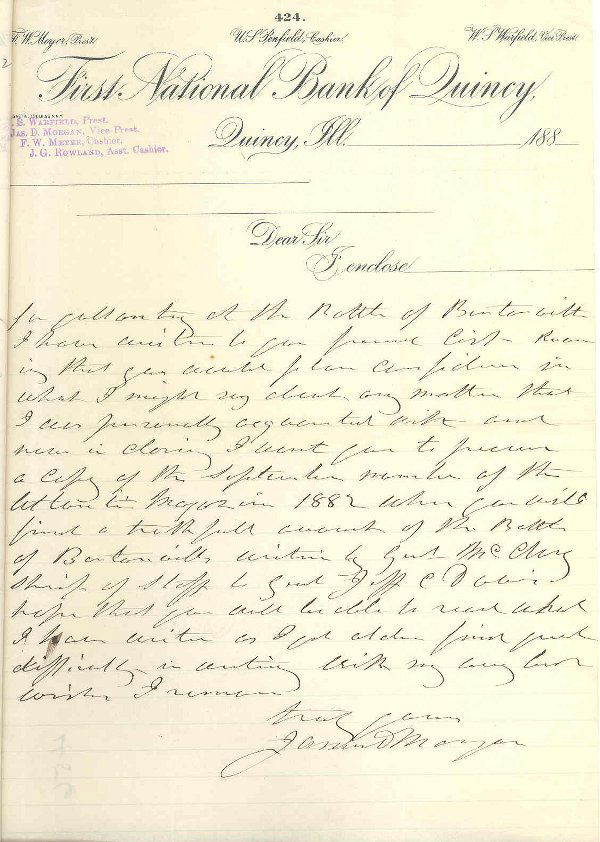 424.
F. W. Meyer, Prest. U. S. Penfield, Cashier. W. S. Warfield, Vice Prest.
First National Bank of Quincy,
S. WARFIELD, Prest.
JAS. D. MORGAN, Vice Prest.
F. W. MEYER, Cashier.
J. G. ROWLAND, Asst. Cashier.
Quincy, Ill. 188
Dear Sir
I enclose
for gallantry at the Battle of Bentonville
I have written to you
ing that you would place confidence in
what I might say about any matter that
I was personally acquainted with and
now in closing I want you to procure
a copy of the September number of the
Atlantic Magazin 1882 when you will
find a truthfull account of the Battle
of Bentonville written by Genl McClurg
of Staff to Genl Jeff C Davis
hope that you will be able to read what
I have writen as I get older find great
difficulty in writing With my very best
wishes I remain
truly yours
James D Morgan